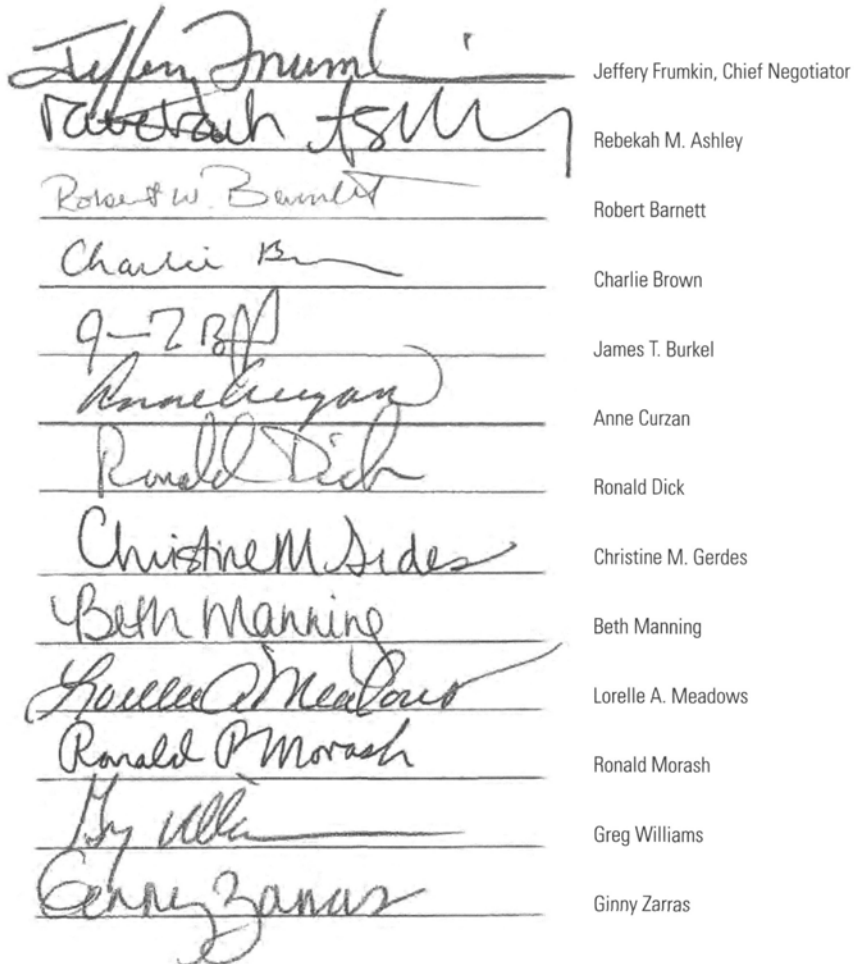 Jeffery Frumkin Jeffery Frumkin, Chief Negotiator
Rebekah Ashley Rebekah M. Ashley
Robert W. Barnett Robert Barnett
Charlie B Charlie Brown
James T. Burkel
Anne Curzan Anne Curzan
Ronald Dick Ronald Dick
Christine M Gerdes Christine M. Gerdes
Beth Manning Beth Manning
Lorelle A Meadows Lorelle A. Meadows
Ronald P Morash Ronald Morash
Greg Williams
Ginny Zarras Ginny Zarras